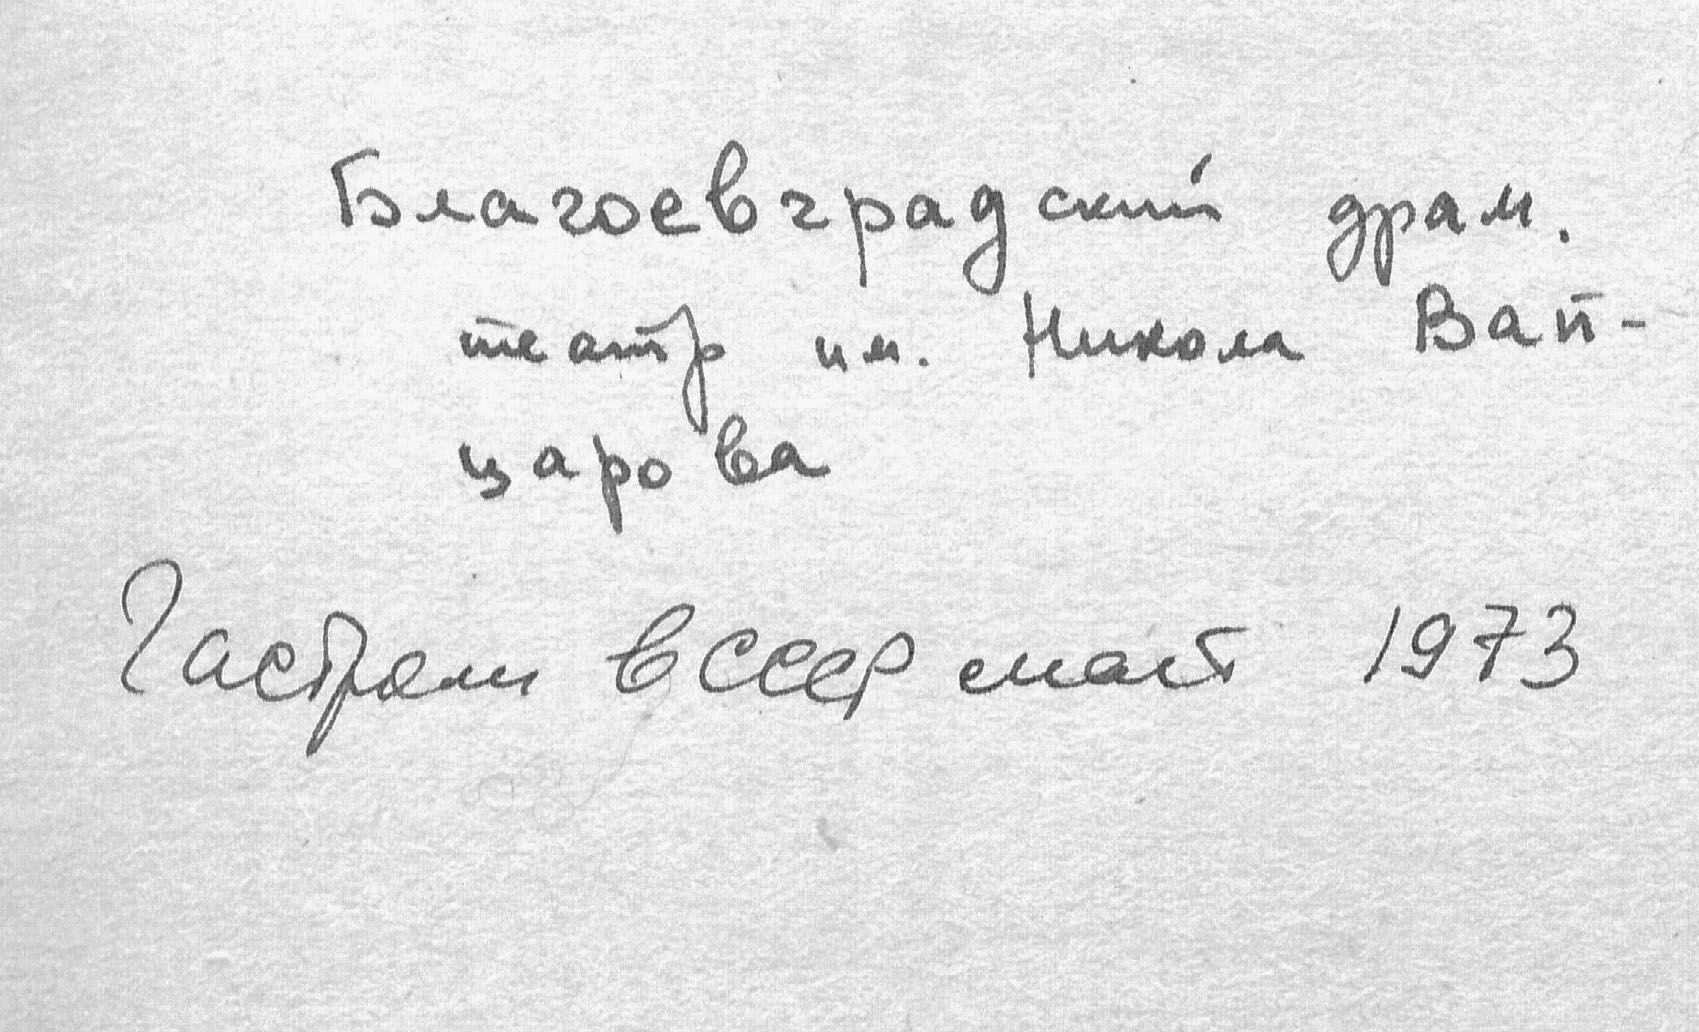 Благоевградский драм.
театр им. Никола Вап-
царова
Гастроли в СССР март 1973